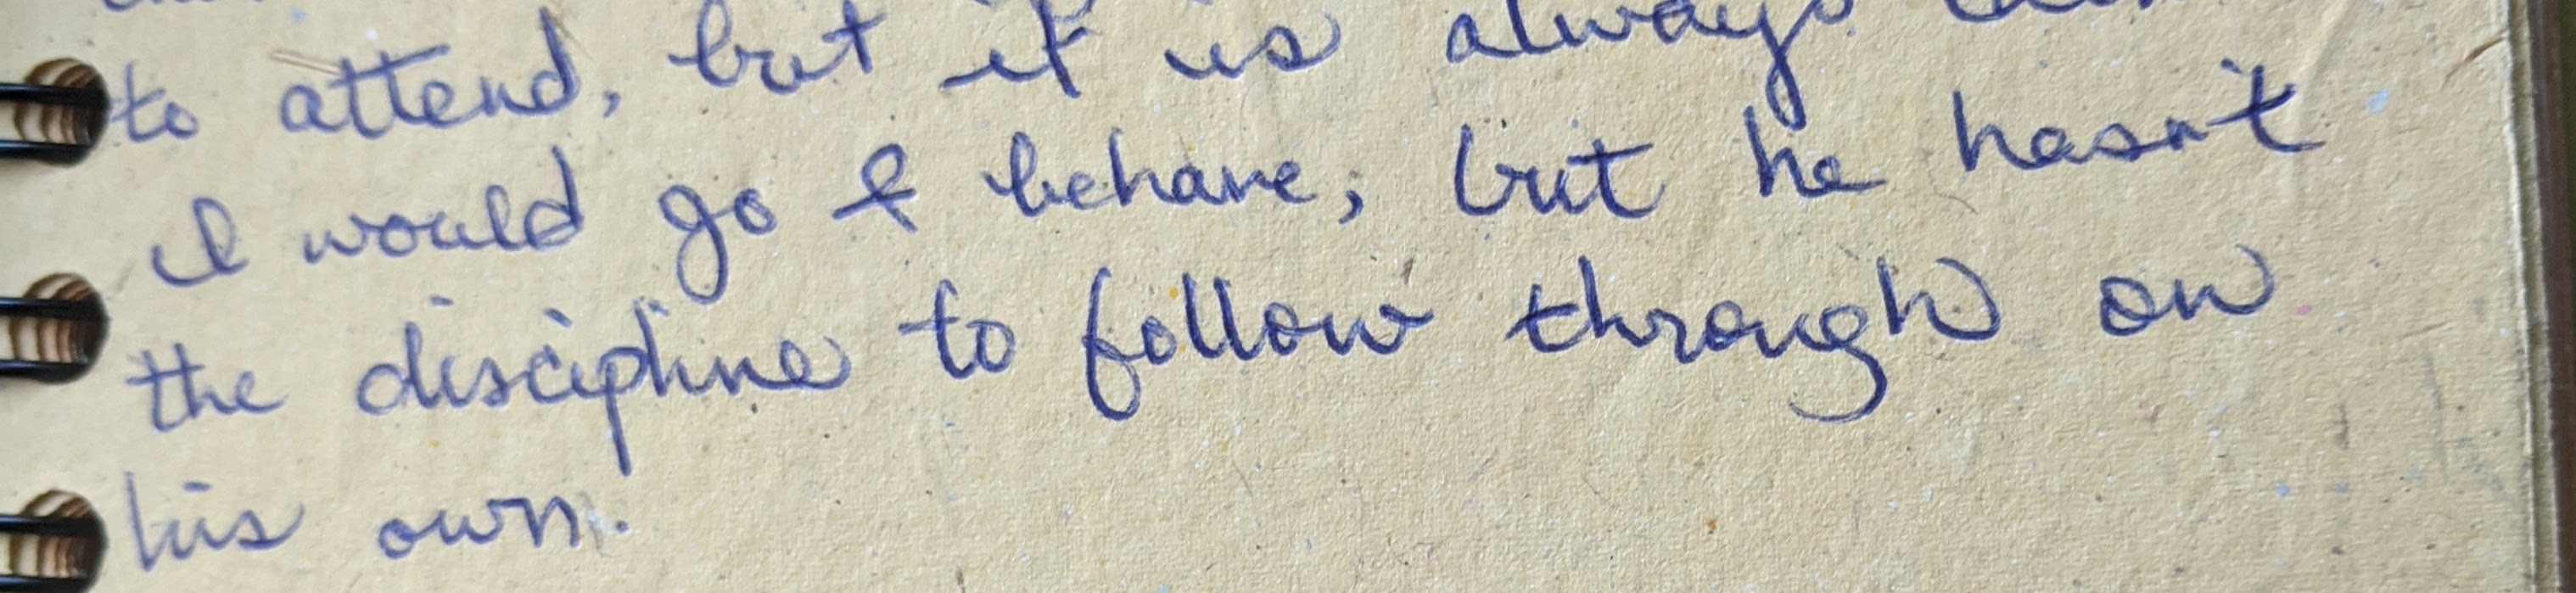 to attend, but it is always
I would go & behave, but he hasn't
the discipline to follow through on
his own.